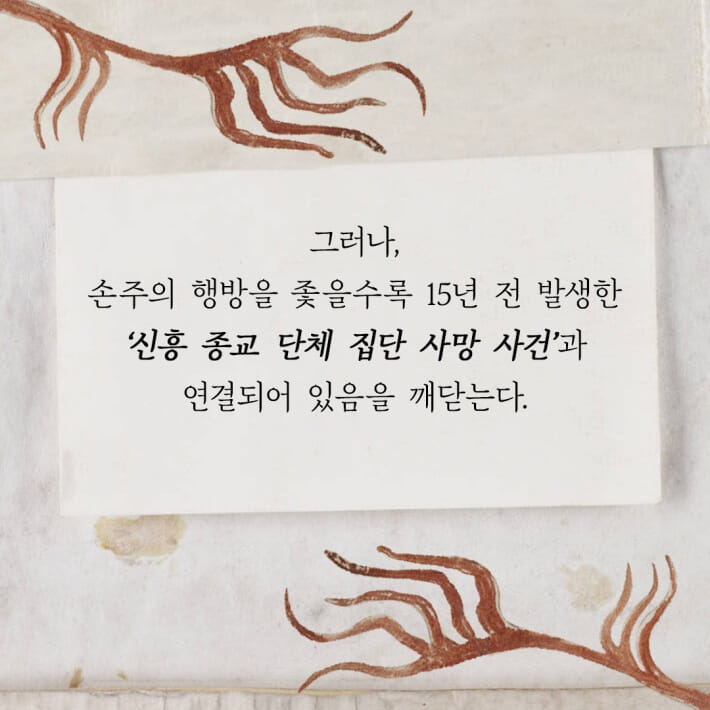 그러나,
손주의 행방을 좇을수록 15년 전 발생한
‘신흥 종교 단체 집단 사망 사건’과
연결되어 있음을 깨닫는다.